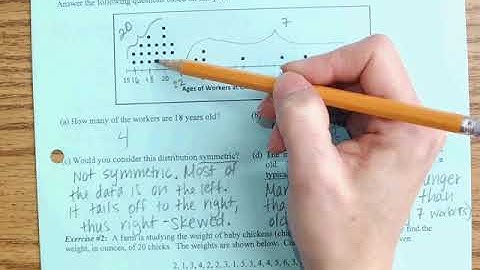 Answer the following questions based on
20
7
15 16 18 20 22
Ages of Workers at
(a) How many of the workers are 18 years old?
(b)
4
(c) Would you consider this distribution symmetric?
(d) The
old.
Not symmetric. Most of
the data is on the left.
It tails off to the right,
thus right-skewed.
typical
Man
tha
old
unger
than
7 workers)
Exercise #2: A farm is studying the weight of baby chickens (chic
find the
weight, in ounces, of 20 chicks. The weights are shown below.
2, 1, 3, 4, 2, 2, 3, 1, 5, 3, 4, 4, 5, 6, 3,